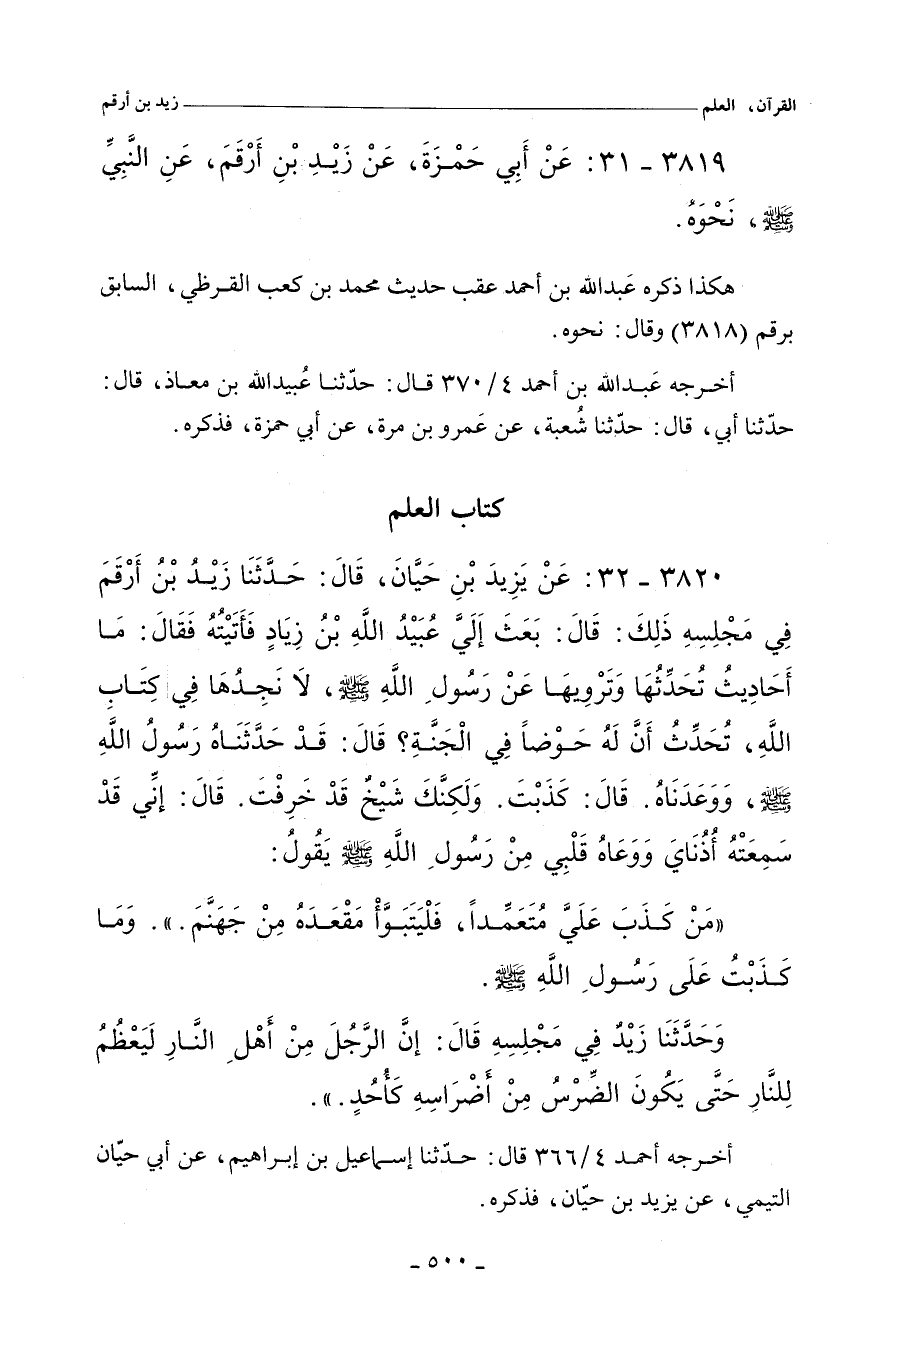 القرآن، العلم ــــــــــــ زيد بن أرقم
٣٨١٩ - ٣١: عَنْ أَبِي حَمْزَةَ، عَنْ زَيْدِ بْنِ أَرْقَمَ، عَنِ النَّبِيِّ
ﷺ، نَحْوَهُ.
هكذا ذكره عَبدالله بن أحمد عقب حديث محمد بن كعب القرظي، السابق
برقم (٣٨١٨) وقال: نحوه.
أخرجه عَبدالله بن أحمد ٣٧٠/٤ قال: حدّثنا عُبيدالله بن معاذ، قال:
حدّثنا أبي، قال: حدّثنا شُعبة، عن عَمرو بن مرة، عن أبي حمزة، فذكره.
كتاب العلم
٣٨٢٠ - ٣٢: عَنْ يَزِيدَ بْنِ حَيَّانَ، قَالَ: حَدَّثَنَا زَيْدُ بْنُ أَرْقَمَ
فِي مَجْلِسِهِ ذَلِكَ: قَالَ: بَعَثَ إِلَيَّ عُبَيْدُ اللَّهِ بْنُ زِيَادٍ فَأَتَيْتُهُ فَقَالَ: مَا
أَحَادِيثُ تُحَدِّثُهَا وَتَرْوِيهَا عَنْ رَسُولِ اللَّهِ ﷺ، لاَ نَجِدُهَا فِي كِتَابِ
اللَّهِ، تُحَدِّثُ أَنَّ لَهُ حَوْضاً فِي الْجَنَّةِ؟ قَالَ: قَدْ حَدَّثَنَاهُ رَسُولُ اللَّهِ
ﷺ، وَوَعَدَنَاهُ. قَالَ: كَذَبْتَ. وَلَكِنَّكَ شَيْخٌ قَدْ خَرِفْتَ. قَالَ: إِنِّي قَدْ
سَمِعَتْهُ أُذُنَايَ وَوَعَاهُ قَلْبِي مِنْ رَسُولِ اللَّهِ ﷺ يَقُولُ:
«مَنْ كَذَبَ عَلَيَّ مُتَعَمِّداً، فَلْيَتَبَوَّأْ مَقْعَدَهُ مِنْ جَهَنَّمَ.». وَمَا
كَذَبْتُ عَلَى رَسُولِ اللَّهِ ﷺ.
وَحَدَّثَنَا زَيْدٌ فِي مَجْلِسِهِ قَالَ: إِنَّ الرَّجُلَ مِنْ أَهْلِ النَّارِ لَيَعْظُمُ
لِلنَّارِ حَتَّى يَكُونَ الضِّرْسُ مِنْ أَضْرَاسِهِ كَأُحُدٍ.».
أخرجه أحمد ٣٦٦/٤ قال: حدّثنا إسماعيل بن إبراهيم، عن أبي حيّان
التيمي، عن يزيد بن حيّان، فذكره.
- ٥٠٠ -